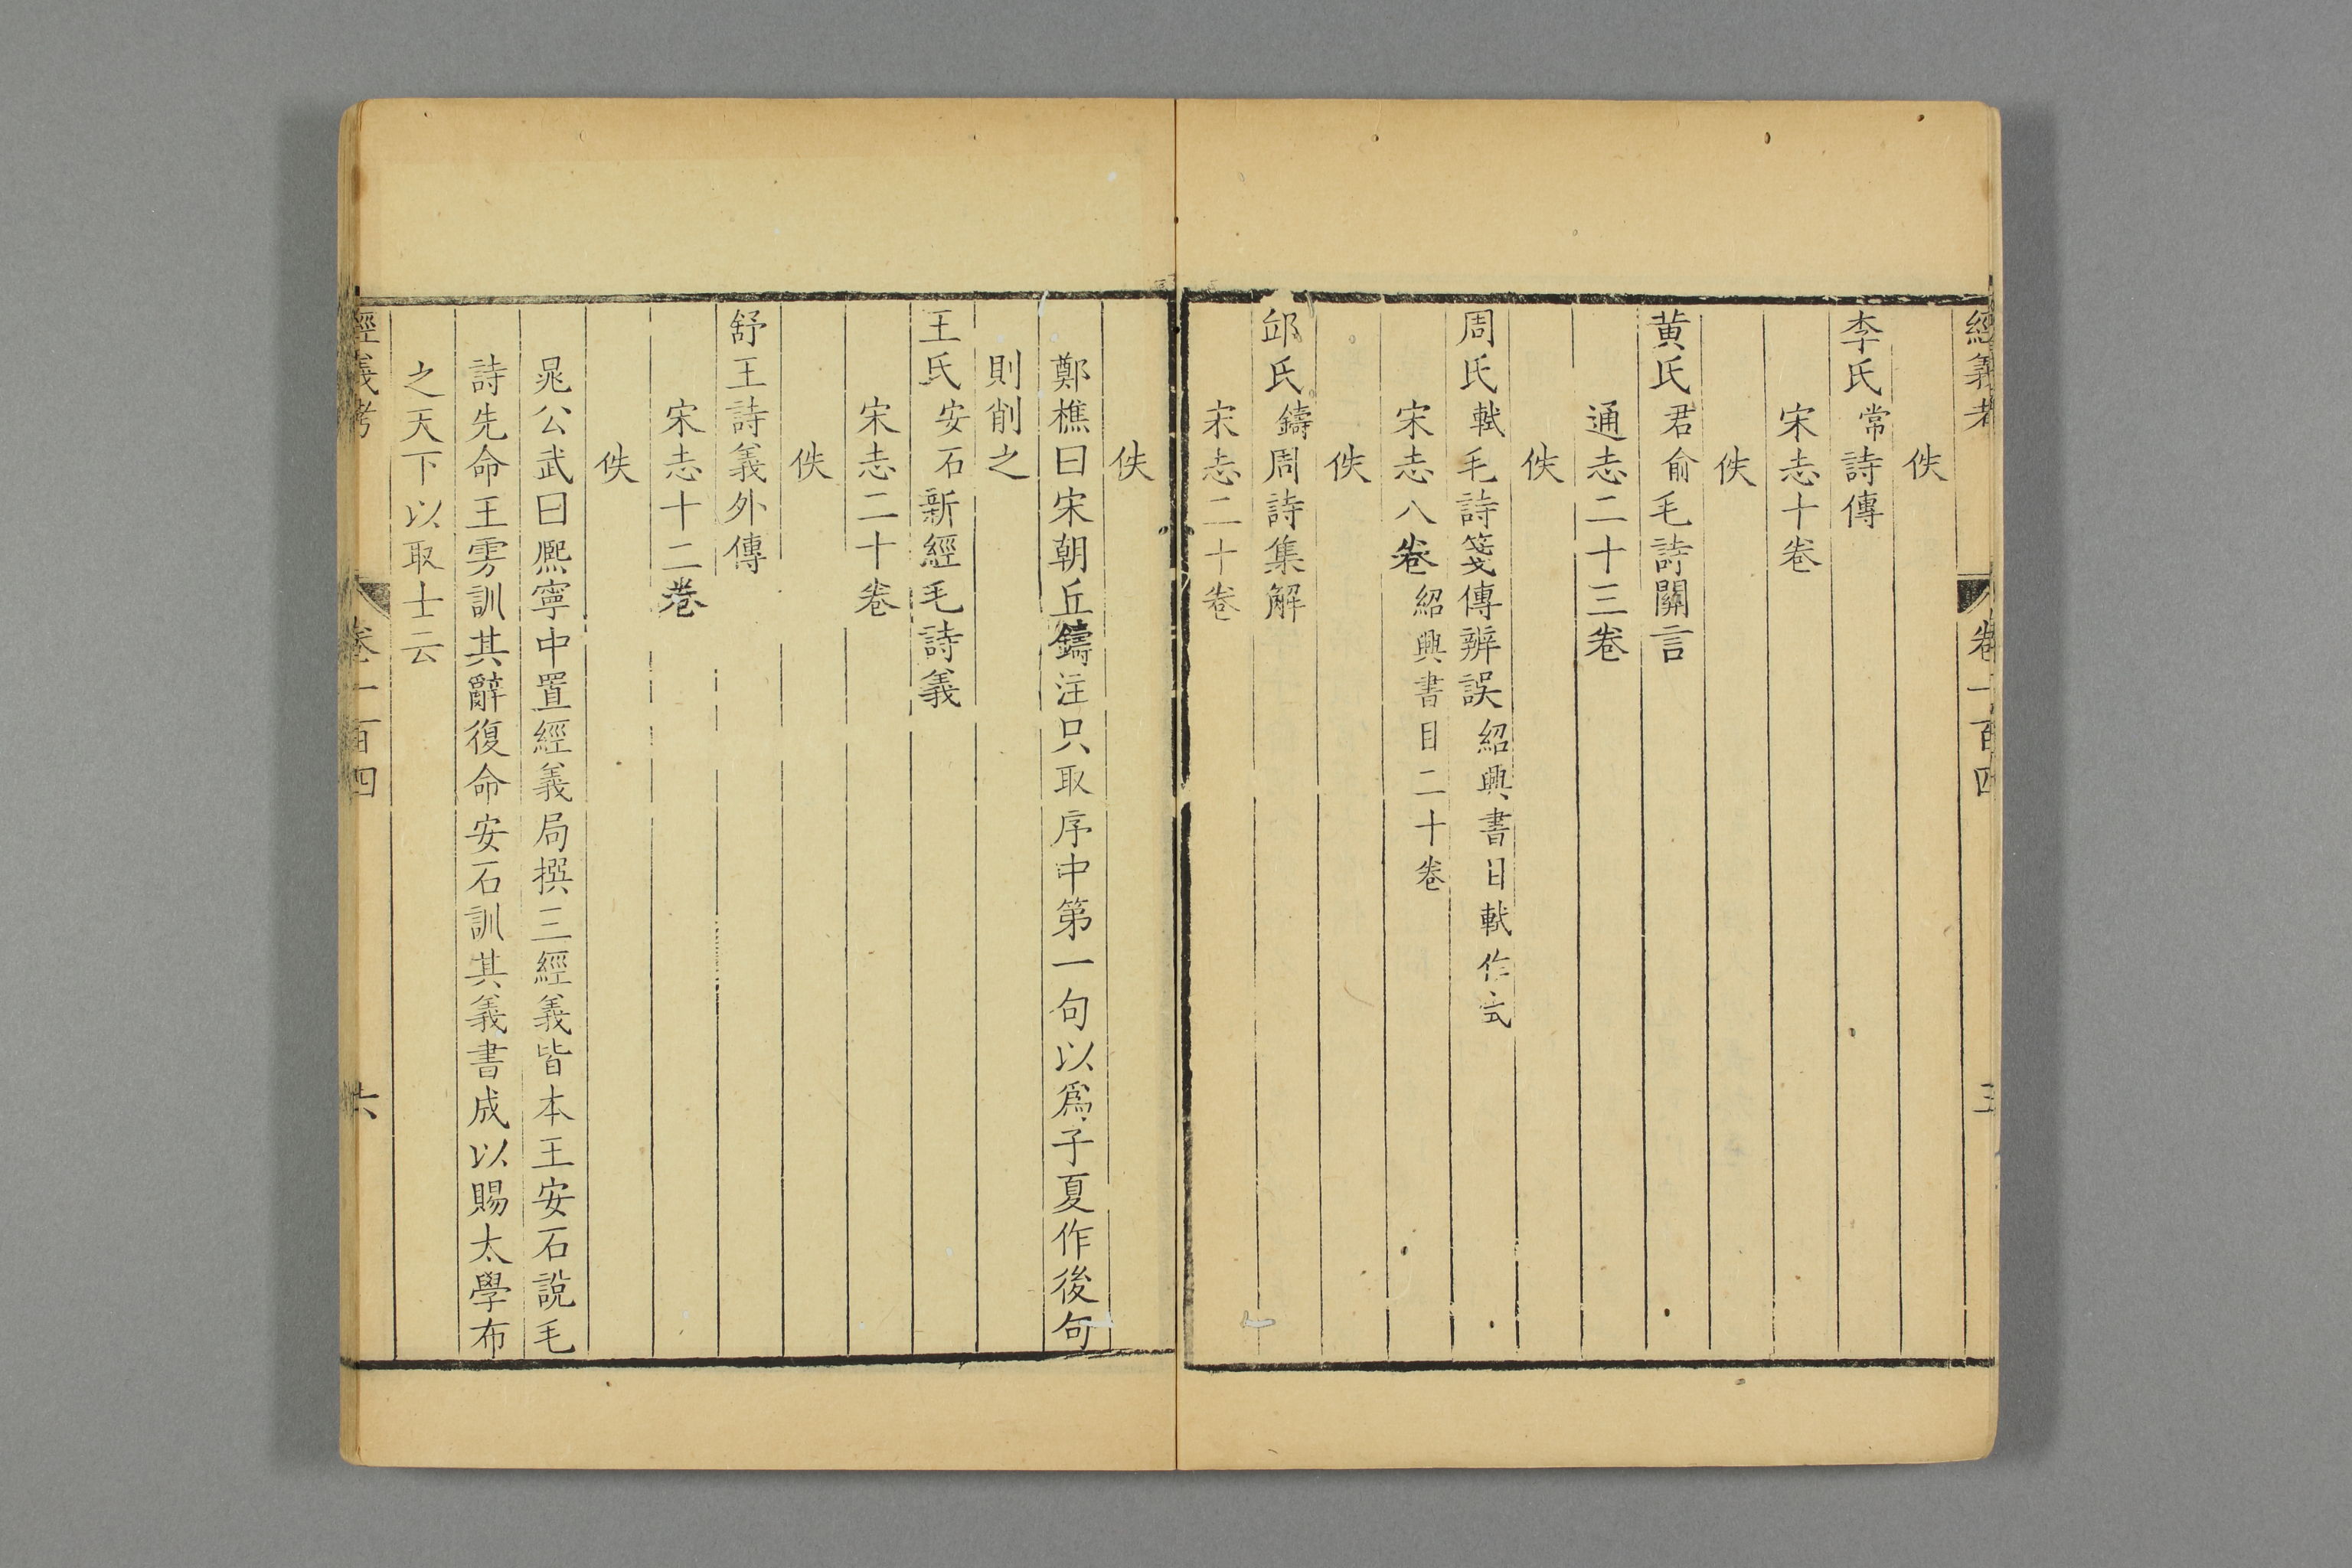 經義考 卷一百四
佚
李氏常詩傳
宋志十卷
佚
黃氏君俞毛詩關言
通志二十三卷
佚
周氏軾毛詩箋傳辨誤紹興書目軾作式
宋志八卷紹興書目二十卷
佚
邱氏鑄周詩集解
宋志二十卷
佚
鄭樵曰宋朝丘鑄注只取序中第一句以爲子夏作後句
則削之
王氏安石新經毛詩義
宋志二十卷
佚
舒王詩義外傳
宋志十二卷
佚
晁公武曰熈寧中置經義局撰三經義皆本王安石說毛
詩先命王雱訓其辭復命安石訓其義書成以賜太學布
之天下以取士云
經義考 卷一百四 六